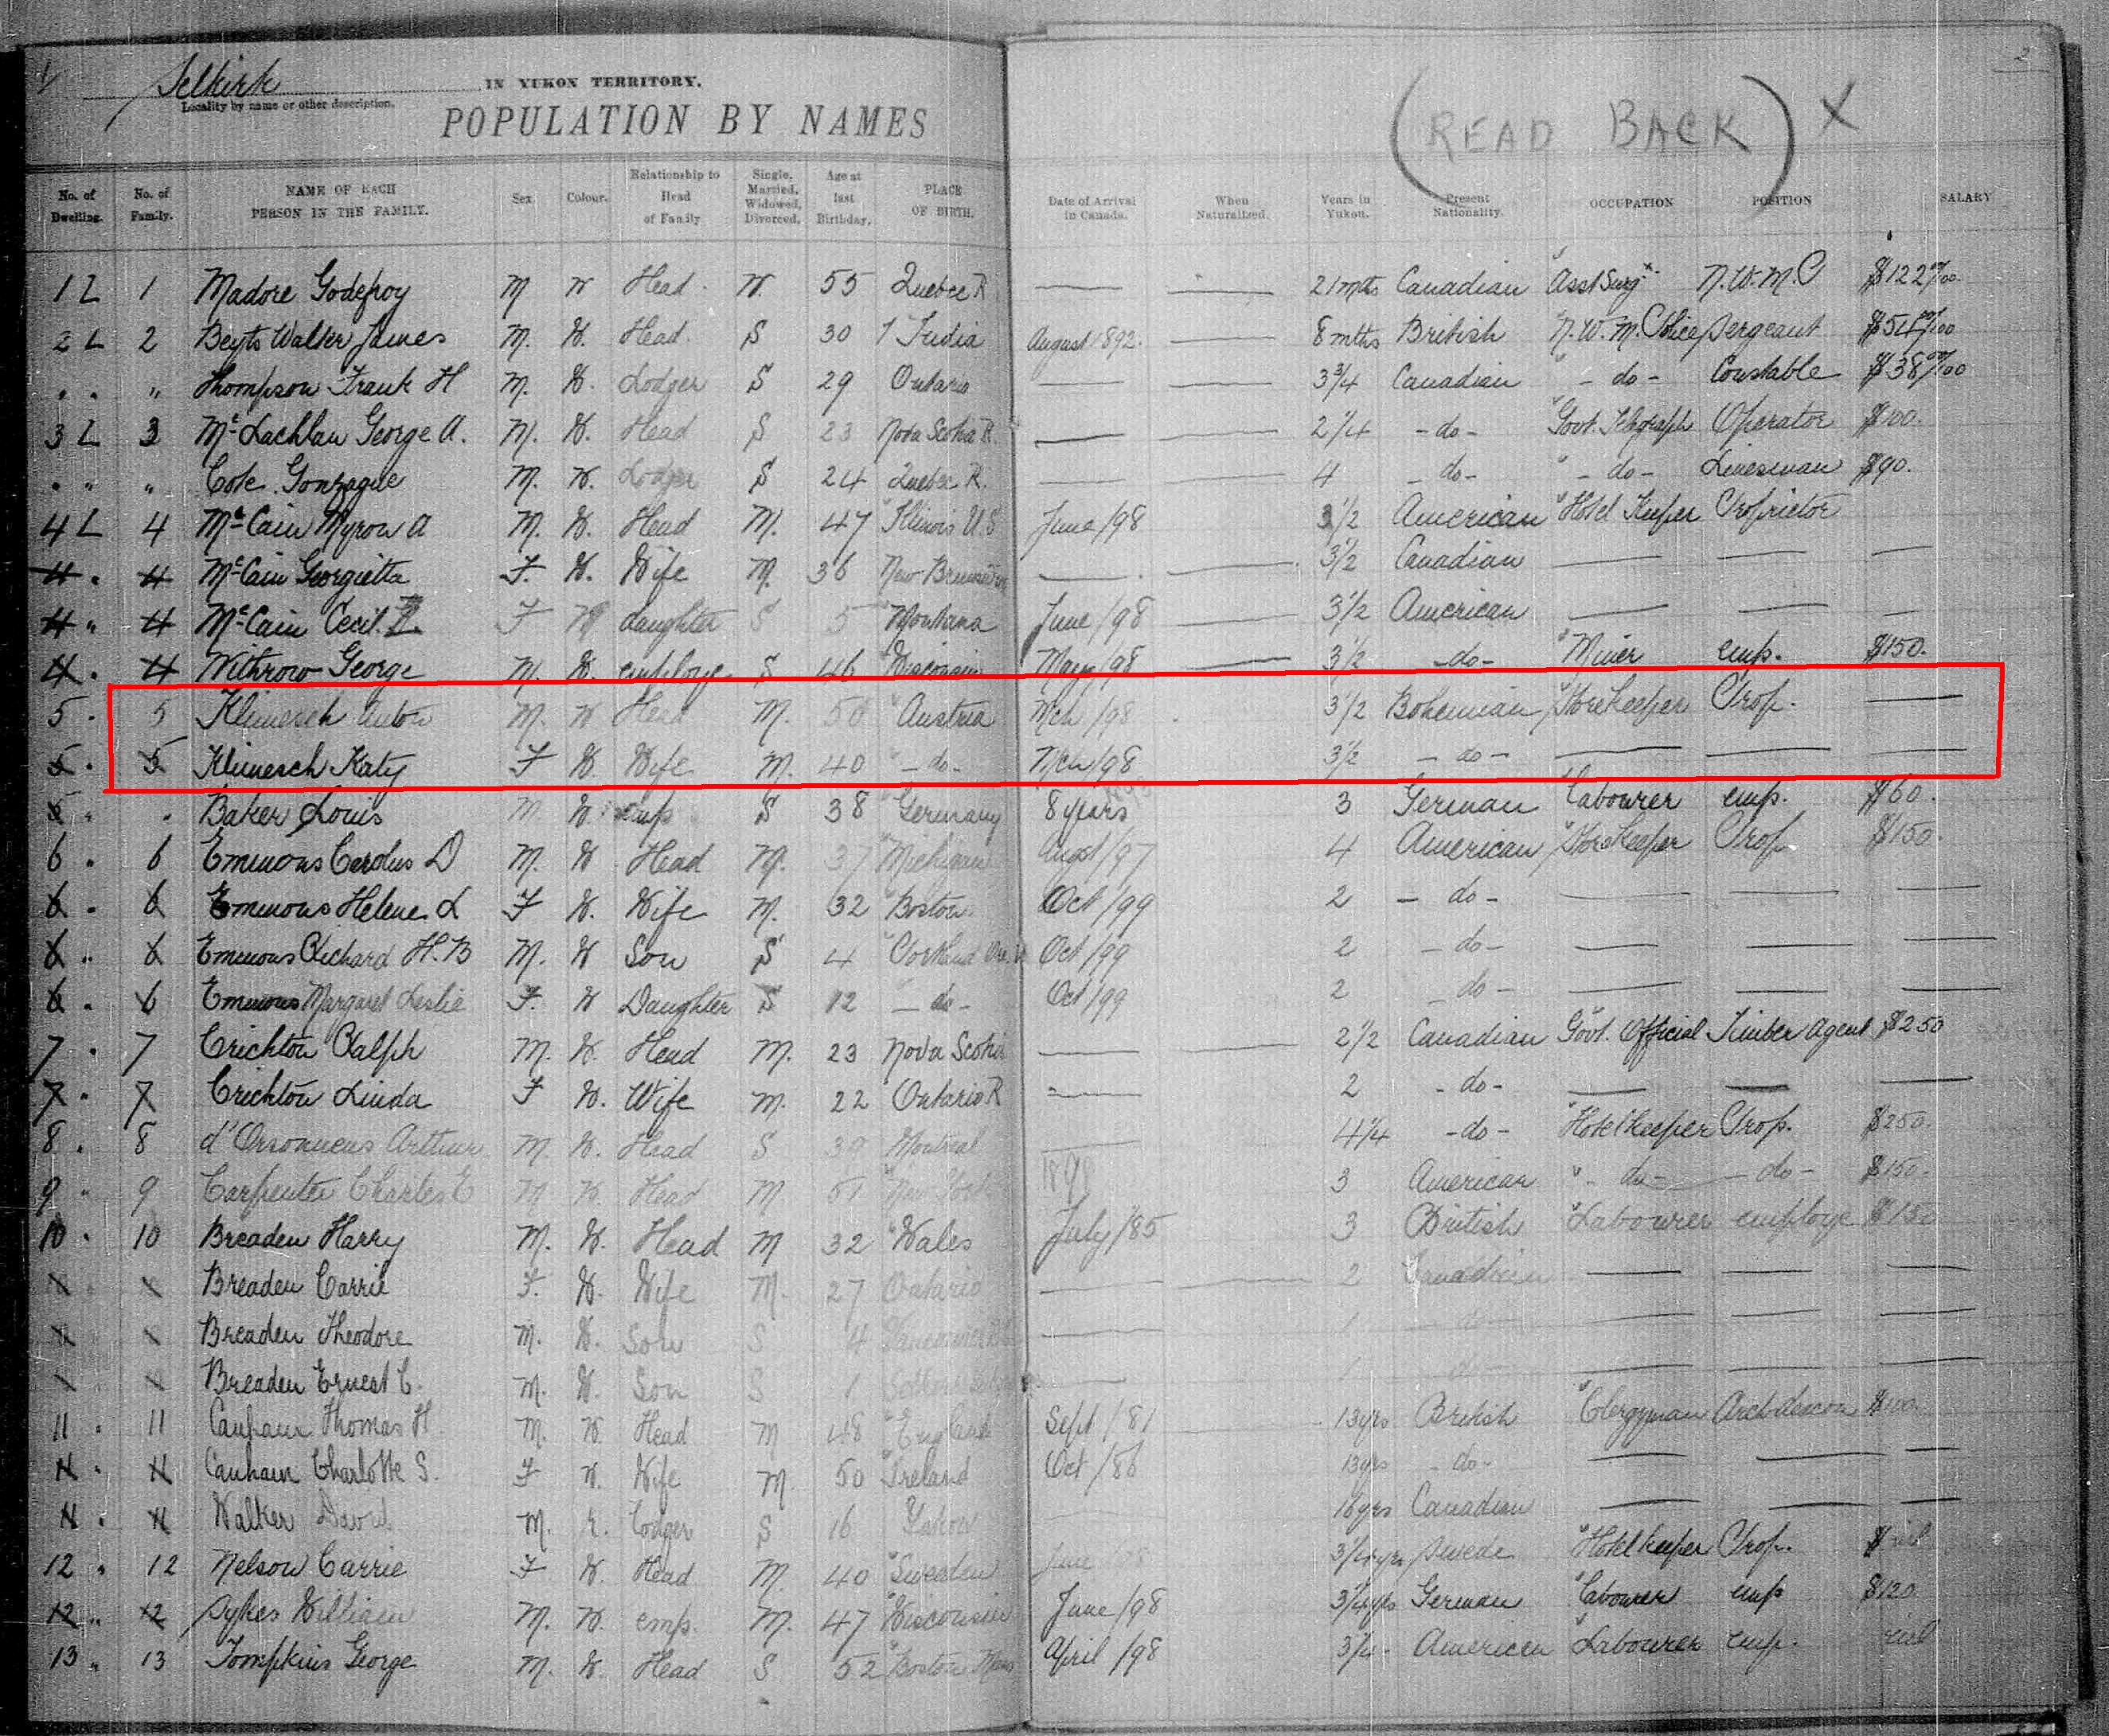 1/
Selkirk IN YUKON TERRITORY. 2
Locality by name or other description.
POPULATION BY NAMES (READ BACK) X
No. of Dwelling. No. of Family. NAME OF EACH PERSON IN THE FAMILY. Sex Colour. Relationship to Head of Family Single, Married, Widowed, Divorced. Age at last Birthday. PLACE OF BIRTH. Date of Arrival in Canada. When Naturalized. Years in Yukon. Present Nationality. OCCUPATION POSITION SALARY
1 L 1 Madore Godefroy M W Head W. 55 Quebec R — — 21 mths Canadian Asst Surg N.W.M.P $122 00/100
2 L 2 Beyts Walter James M. W. Head. S 30 India August 1892. — 8 mths British N.W.M. Police Sergeant $54 00/100
" " " Thompson Frank H M. W. Lodger S 29 Ontario — — 3 3/4 Canadian - do - Constable $38 00/100
3 L 3 McLachlan George A. M. W. Head S 23 Nova Scotia R. — — 2 1/4 - do - Govt. Telegraph Operator $100.
" " " Cote Gonzague M. W. Lodger S 24 Quebec R. — — 4 - do - " - do - Linesman $90.
4 L 4 McCain Myron A M. W. Head M. 47 Illinois U.S June/98 3 1/2 American Hotel Keeper Proprietor
4 " 4 McCain Georgietta F. W. Wife M. 36 New Brunswick — — 3 1/2 Canadian — — —
4 " 4 McCain Cecil F W daughter S 5 Montana June/98 — 3 1/2 American — — —
4 " 4 Withrow George M. W. employe S 46 Wisconsin May/98 — 3 1/2 - do - Miner emp. $150.
5 " 5 Klimesch Anton M. W Head M. 50 Austria Mch/98 3 1/2 Bohemian Storekeeper Prop. —
5 " 5 Klimesch Katy F W. Wife M. 40 " - do - Mch/98 3 1/2 - do - — — —
5 " " Baker Louis M W. emp S 38 Germany 8 years 3 German Labourer emp. $60.
6 " 6 Emmons Carolus D M. W Head M. 37 Michigan August/97 4 American Storekeeper Prop $150.
6 " 6 Emmons Helene L F W. Wife M. 32 Boston Oct/99 2 - do - — — —
6 " 6 Emmons Richard H.B M. W Son S 4 Portland Ore. Oct/99 2 - do - — — —
6 " 6 Emmons Margaret Leslie F. W Daughter S 12 - do - Oct/99 2 - do - — — —
7 " 7 Crichton Ralph M. W. Head M. 23 Nova Scotia — — 2 1/2 Canadian Govt. Official Timber Agent $250
7 " 7 Crichton Linda F W. Wife M. 22 Ontario R — 2 - do - — — —
8 " 8 d'Orsonnens Arthur M. W. Head S 39 Montreal — 4 1/4 - do - Hotelkeeper Prop. $250.
9 " 9 Carpenter Charles E M W. Head M 51 New York 1898 3 American " - do - - do - $150.
10 " 10 Breaden Harry M. W. Head M 32 Wales July/85 3 British Labourer employe $150
" " Breaden Carrie F. W. Wife M. 27 Ontario — — 2 Canadian — — —
" " Breaden Theodore M. W. Son S 4 — 1 - do - — — —
" " Breaden Ernest C. M. W. Son S 1 — 1 - do - — — —
11 " 11 Canham Thomas H M. W. Head M 48 England Sept/81 — 13 yrs British Clergyman Archdeacon $100.
11 " 11 Canham Charlotte S. F W. Wife M. 50 Ireland Oct/86 13 yrs - do - — —
11 " 11 Walker David M. Lodger S 16 Yukon 16 yrs Canadian — — —
12 " 12 Nelson Carrie F W. Head M. 40 Sweden June 3 1/4 yrs Swede Hotelkeeper Prop. $ nil
12 " 12 Sykes William M. W. emp. M. 47 Wisconsin June/98 3 1/4 yrs German Labourer emp $120
13 " 13 Tompkins George M. W. Head S 52 Boston Mass April/98 3 1/4 American Labourer emp. nil